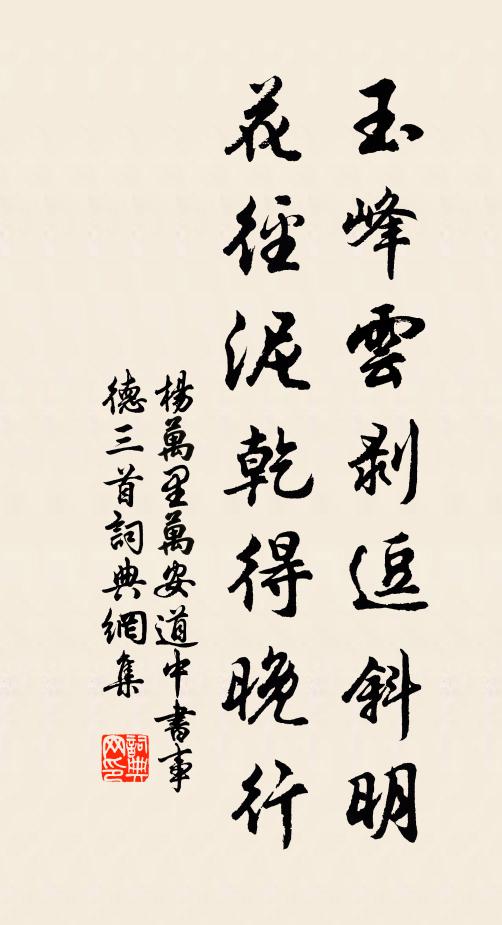 玉峰雲剥逗斜明
花徑泥乾得晚行
楊萬里萬安道中書事
德三首詞典網集
詞典网印